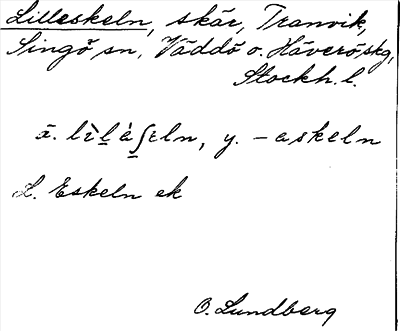 Lilleskeln, skär, Tranvik,
Singö sn, Väddö o. Häverö skg,
Stockh. l.
ä. lìl̠à̠ʃɛln, y. – askeln
L. Eskeln ek
O. Lundberg